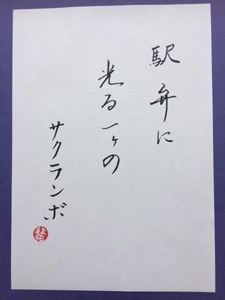 駅弁に
光る一ヶの
サクランボ